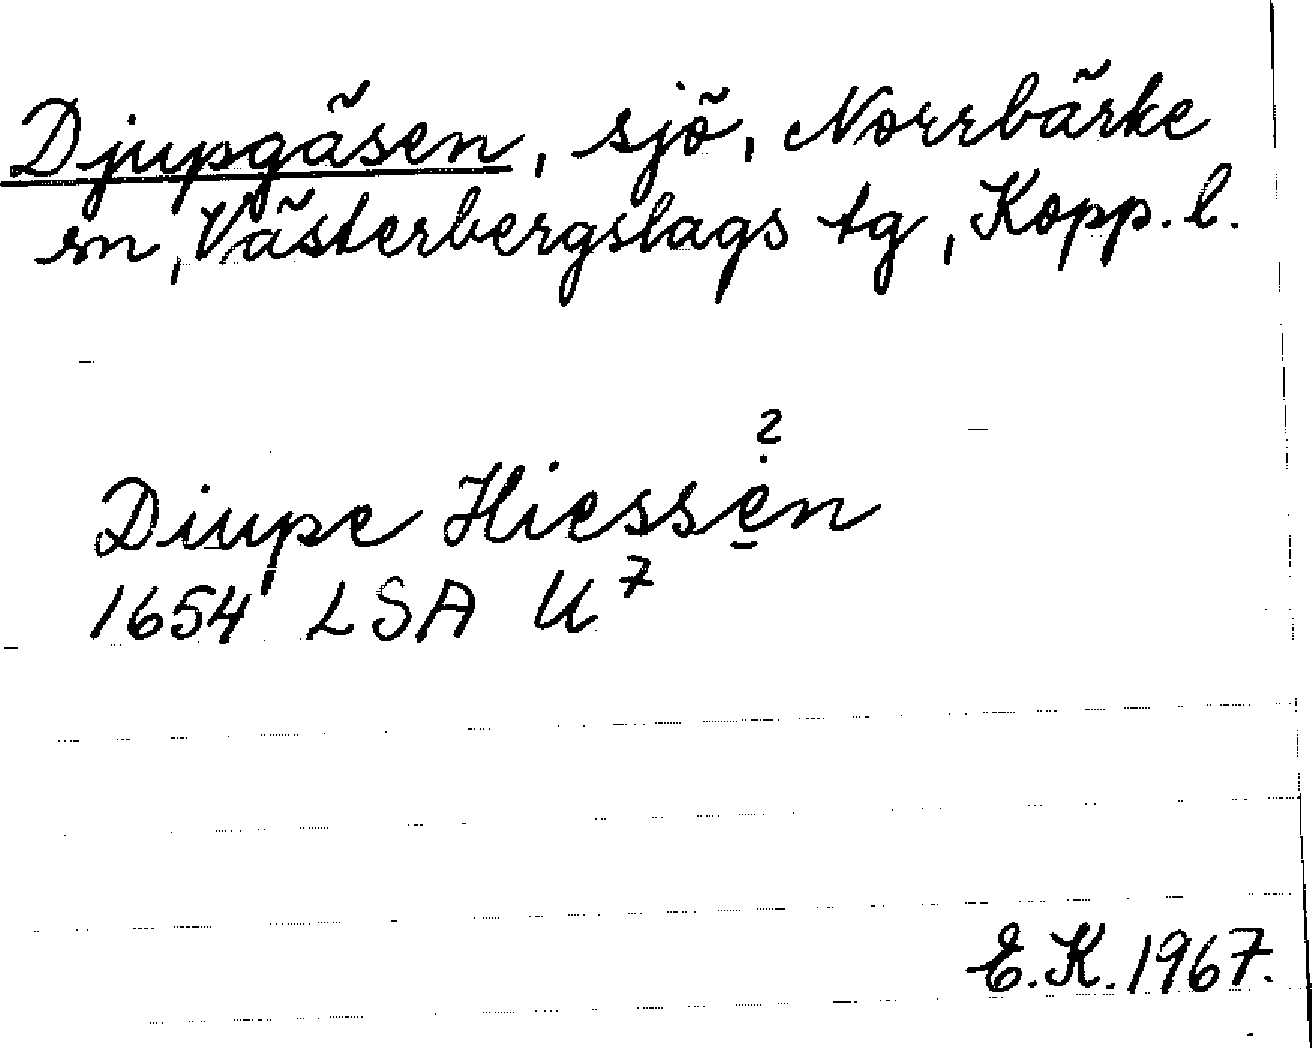 Djupgäsen, sjö, Norrbärke
sn, Västerbergslags tg, Kopp. l.
?
Diupe Hiessen
1654 LSA U⁷
E.K. 1967.